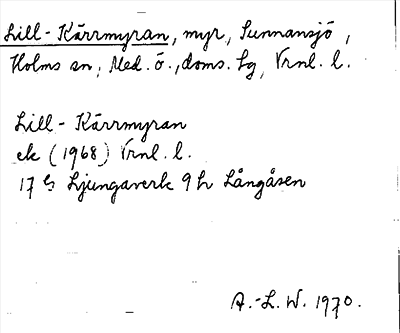 Lill-Kärrmyran, myr, Sunnansjö,
Holms sn, Med. ö., doms. lg, Vrnl. l.
Lill-Kärrmyran
ek (1968) Vrnl. l.
17 G Ljungaverk 9 h Långåsen
A.-L. W. 1970.